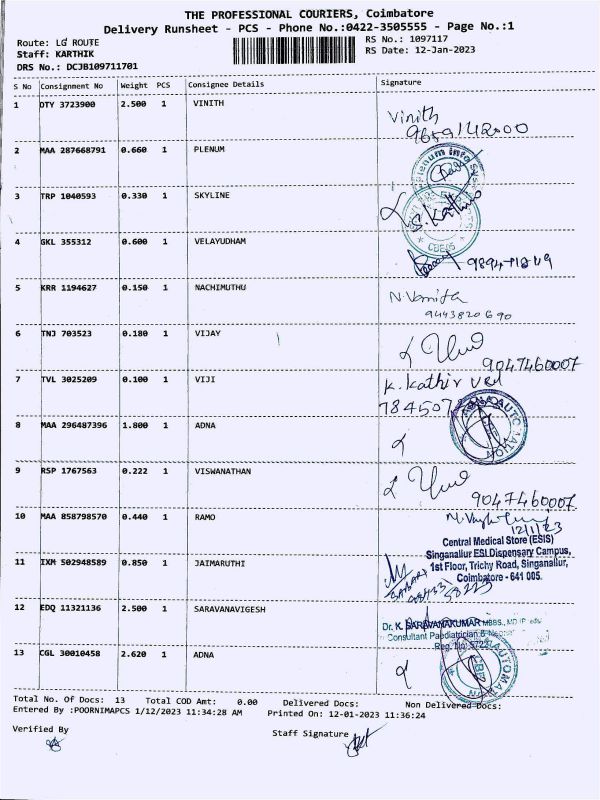 THE PROFESSIONAL COURIERS, Coimbatore
Delivery Runsheet - PCS - Phone No.:0422-3505555 - Page No.:1
Route: LG ROUTE
RS No.: 1097117
Staff: KARTHIK
RS Date: 12-Jan-2023
DRS No.: DCJB109711701
S No Consignment No Weight PCS Consignee Details Signature
1 DTY 3723900 2.500 1 VINITH
Vinith
2 MAA 287668791 0.660 1 PLENUM
Plenum Info
3 TRP 1040593 0.330 1 SKYLINE
S. Kathir
4 GKL 355312 0.600 1 VELAYUDHAM
5 KRR 1194627 0.150 1 NACHIMUTHU
N. Vanitha
9443820690
6 TNJ 703523 0.180 1 VIJAY
9047460007
7 TVL 3025209 0.100 1 VIJI
K. Kathir vel
8 MAA 296487396 1.800 1 ADNA
9 RSP 1767563 0.222 1 VISWANATHAN
9047460007
10 MAA 858798570 0.440 1 RAMO
12/1/23
Central Medical Store (ESIS)
Singanallur ESI Dispensary Campus,
11 IXM 502948589 0.850 1 JAIMARUTHI
1st Floor, Trichy Road, Singanallur,
Coimbatore - 641 005.
12 EDQ 11321136 2.500 1 SARAVANAVIGESH
Dr. K. SARAVANAKUMAR MBBS., MD
Consultant Paediatrician &
Reg. No:
13 CGL 30010458 2.620 1 ADNA
Total No. Of Docs: 13 Total COD Amt: 0.00 Delivered Docs: Non Delivered Docs:
Entered By :POORNIMAPCS 1/12/2023 11:34:28 AM Printed On: 12-01-2023 11:36:24
Verified By Staff Signature